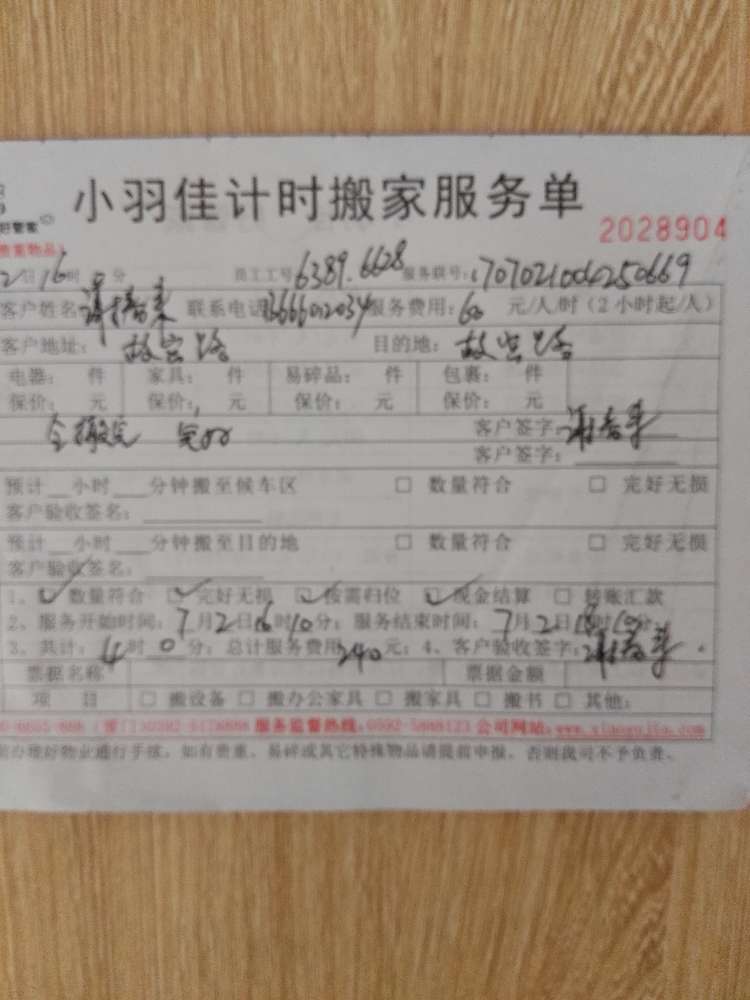 好管家
小羽佳计时搬家服务单
2028904
贵重物品)
2日16时 分 员工工号6389.6628 服务联号:1707021004250669
客户姓名 联系电话13666012034服务费用:60 元/人/时(2小时起/人)
客户地址: 故宫路 目的地: 故宫路
电器: 件 家具: 件 易碎品: 件 包裹: 件
保价: 元 保价: 元 保价: 元 保价: 元
全搬完 完好 客户签字:
客户签字:
预计__小时___分钟搬至候车区 □ 数量符合 □ 完好无损
客户验收签名:
预计__小时___分钟搬至目的地 □ 数量符合 □ 完好无损
客户验收签名:
1、☑ 数量符合 ☑ 完好无损 ☑ 按需归位 ☑ 现金结算 □ 转账汇款
2、服务开始时间:7月2日16时10分;服务结束时间:7月2日18时10分;
3、共计:4时0分;总计服务费用240元;4、客户验收签字:
票据名称 票据金额
项 目 □ 搬设备 □ 搬办公家具 □ 搬家具 □ 搬书 □ 其他:
服务监督热线:0592-5888123 公司网站:www.xiaoyujia.com
前办理好物业通行手续;如有贵重、易碎或其它特殊物品请提前申报,否则我司不予负责。